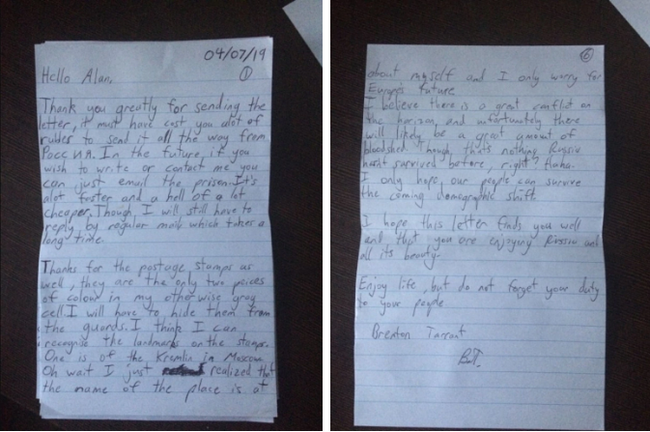 04/07/19
1
Hello Alan,
Thank you greatly for sending the
letter, it must have cost you alot of
rubles to send it all the way from
РоссИЯ. In the future, if you
wish to write or contact me you
can just email the prison. It's
alot faster and a hell of a lot
cheaper. Though, I will still have to
reply by regular mail which takes a
long time.
Thanks for the postage stamps as
well, they are the only two peices
of colour in my otherwise gray
cell. I will have to hide them from
the guards. I think I can
recognise the landmarks on the stamps.
One is of the Kremlin in Moscow.
Oh wait I just realized that
the name of the place is at
6
about myself and I only worry for
Europes future
I believe there is a great conflict on
the horizon, and unfortunately there
will likely be a great amount of
bloodshed. Though, that's nothing Russia
hasnt survived before, right? Haha.
I only hope our people can survive
the coming demographic shift.
I hope this letter finds you well
and that you are enjoying Russia and
all its beauty.
Enjoy life, but do not forget your duty
to your people
Brenton Tarrant
B.T.